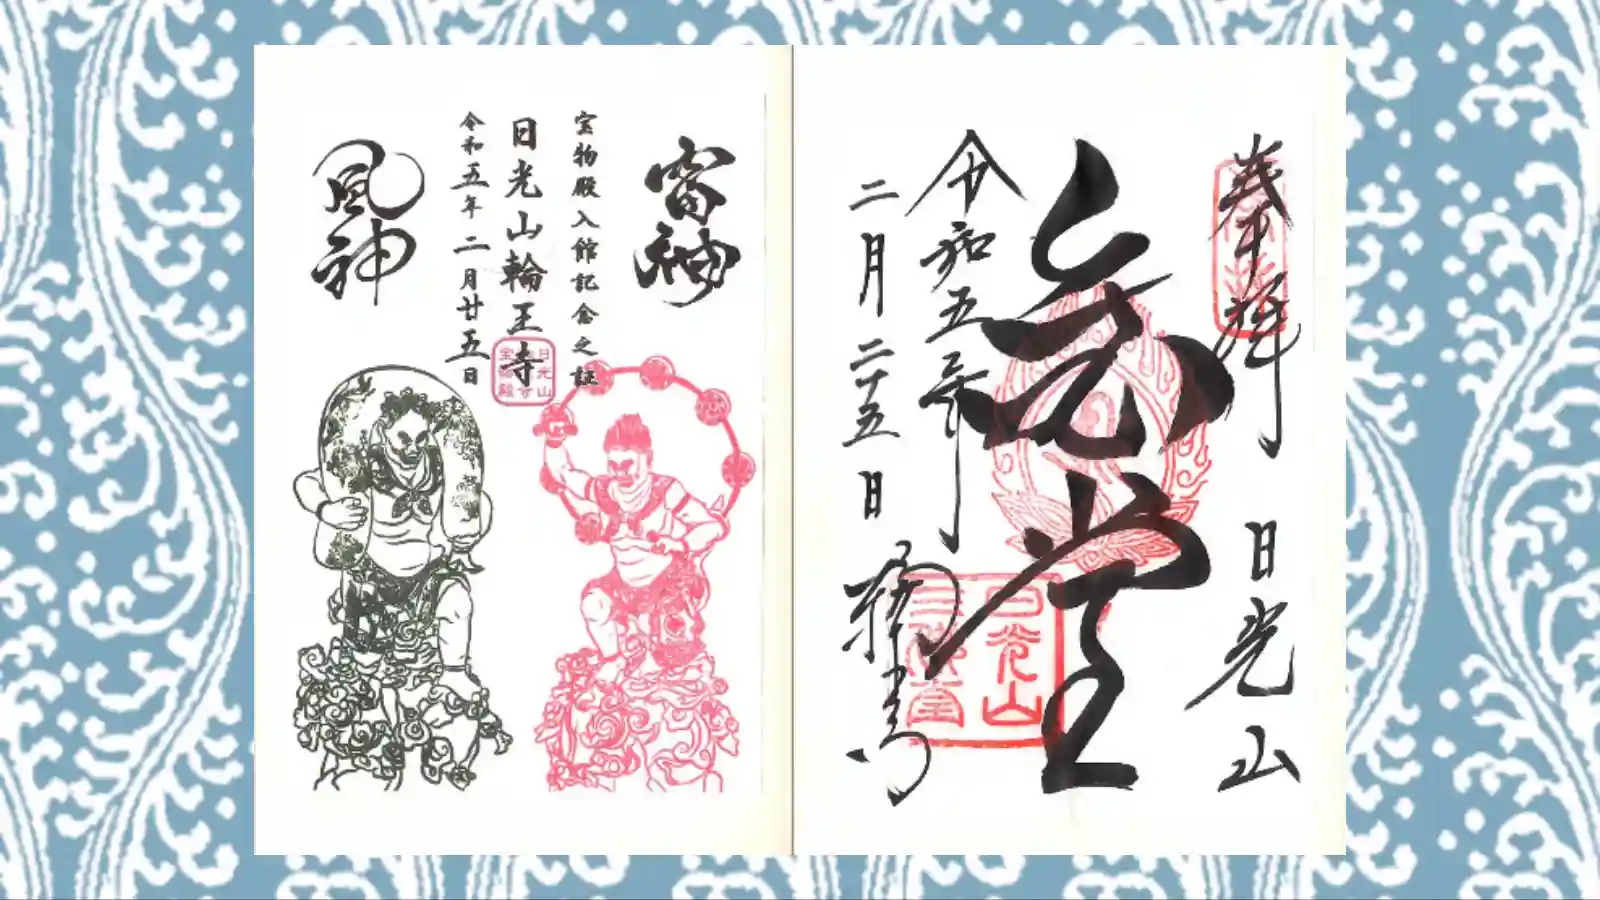 奉拝 日光山
金堂
令和五年
二月二十五日
輪王寺
日光山
三仏堂
雷神
宝物殿入館記念之証
日光山輪王寺
令和五年二月廿五日
風神